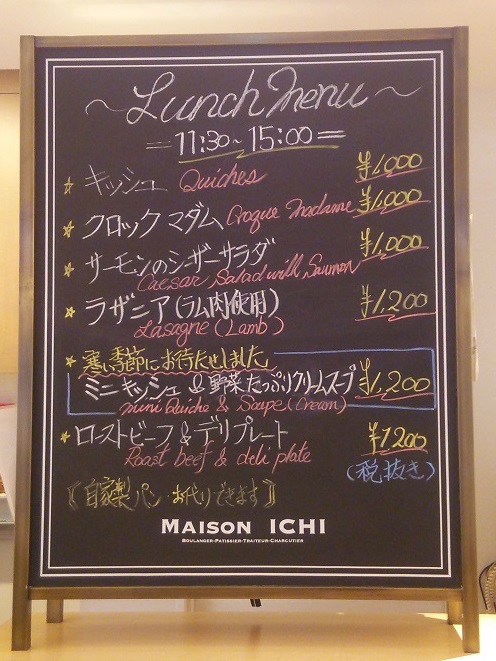 ～Lunch Menu～
=11:30～15:00=
☆ キッシュ Quiches ¥1,000
☆ クロックマダム Croque Madame ¥1,000
☆ サーモンのシーザーサラダ ¥1,000
Caesar Salad will Saumon
☆ ラザニア(ラム肉使用) ¥1,200
Lasagne (Lamb)
☆ 寒い季節にお待たせしました
ミニキッシュ & 野菜たっぷりクリームスープ ¥1,200
mini Quiche & Soupe (Cream)
☆ ローストビーフ&デリプレート ¥1200
Roast beef & deli plate
(税抜き)
《自家製パン・お代りできます》
MAISON ICHI
BOULANGER-PATISSIER-TRAITEUR-CHARCUTIER